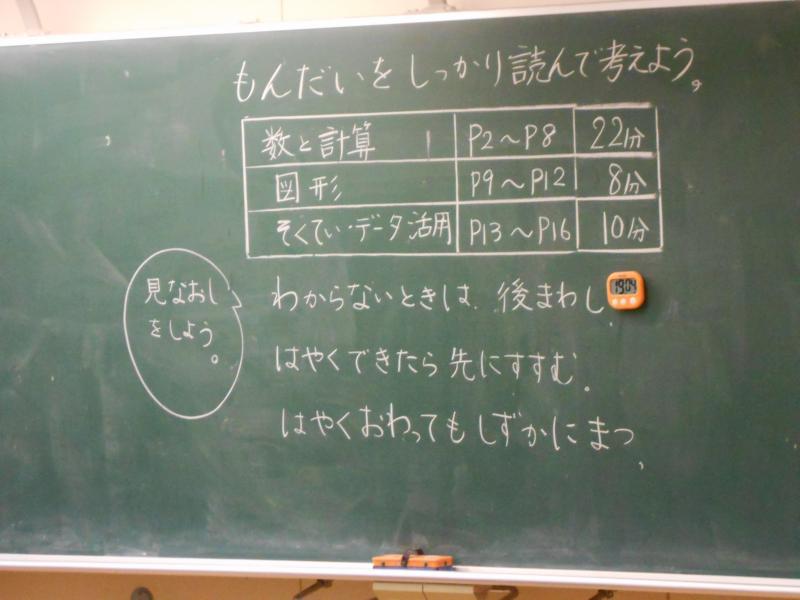 もんだいをしっかり読んで考えよう。
数と計算 P2〜P8 22分
図形 P9〜P12 8分
そくてい・データ活用 P13〜P16 10分
見なおし
をしよう。
わからないときは、後まわし。
19:04
はやくできたら先にすすむ。
はやくおわってもしずかにまつ。